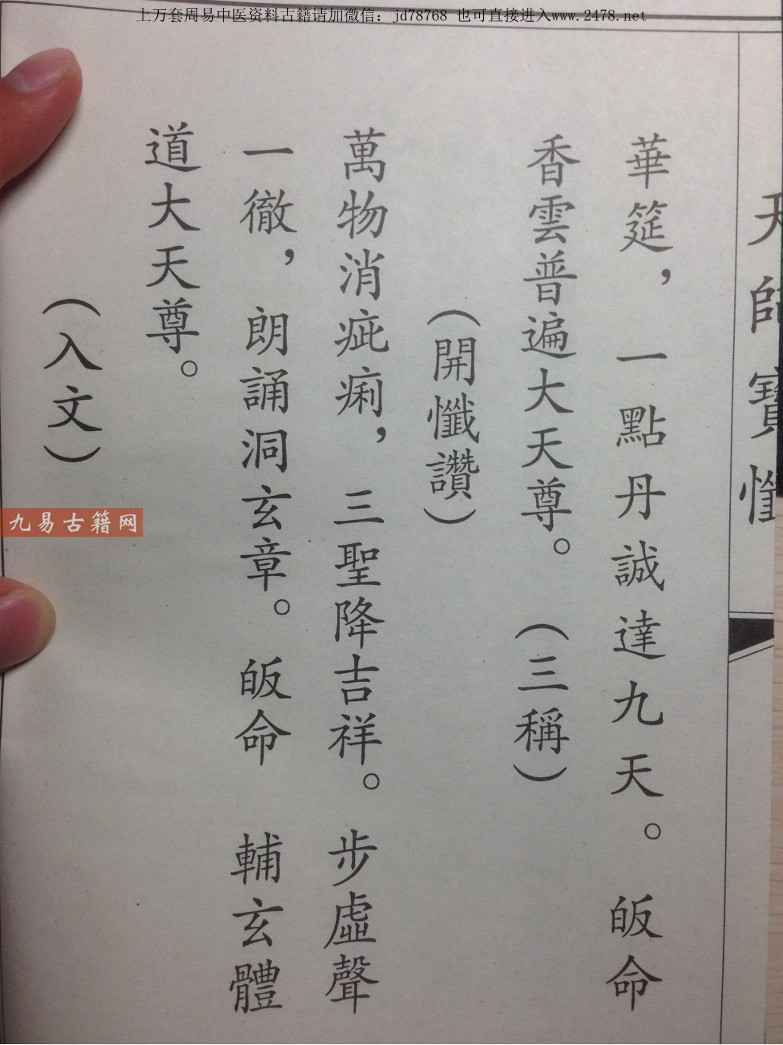 上万套周易中医资料古籍请加微信：jd78768 也可直接进入www.2478.net
天師寶懺
華筵，一點丹誠達九天。皈命
香雲普遍大天尊。（三稱）
（開懺讚）
萬物消疵痢，三聖降吉祥。步虛聲
一徹，朗誦洞玄章。皈命 輔玄體
道大天尊。
（入文）
九易古籍网